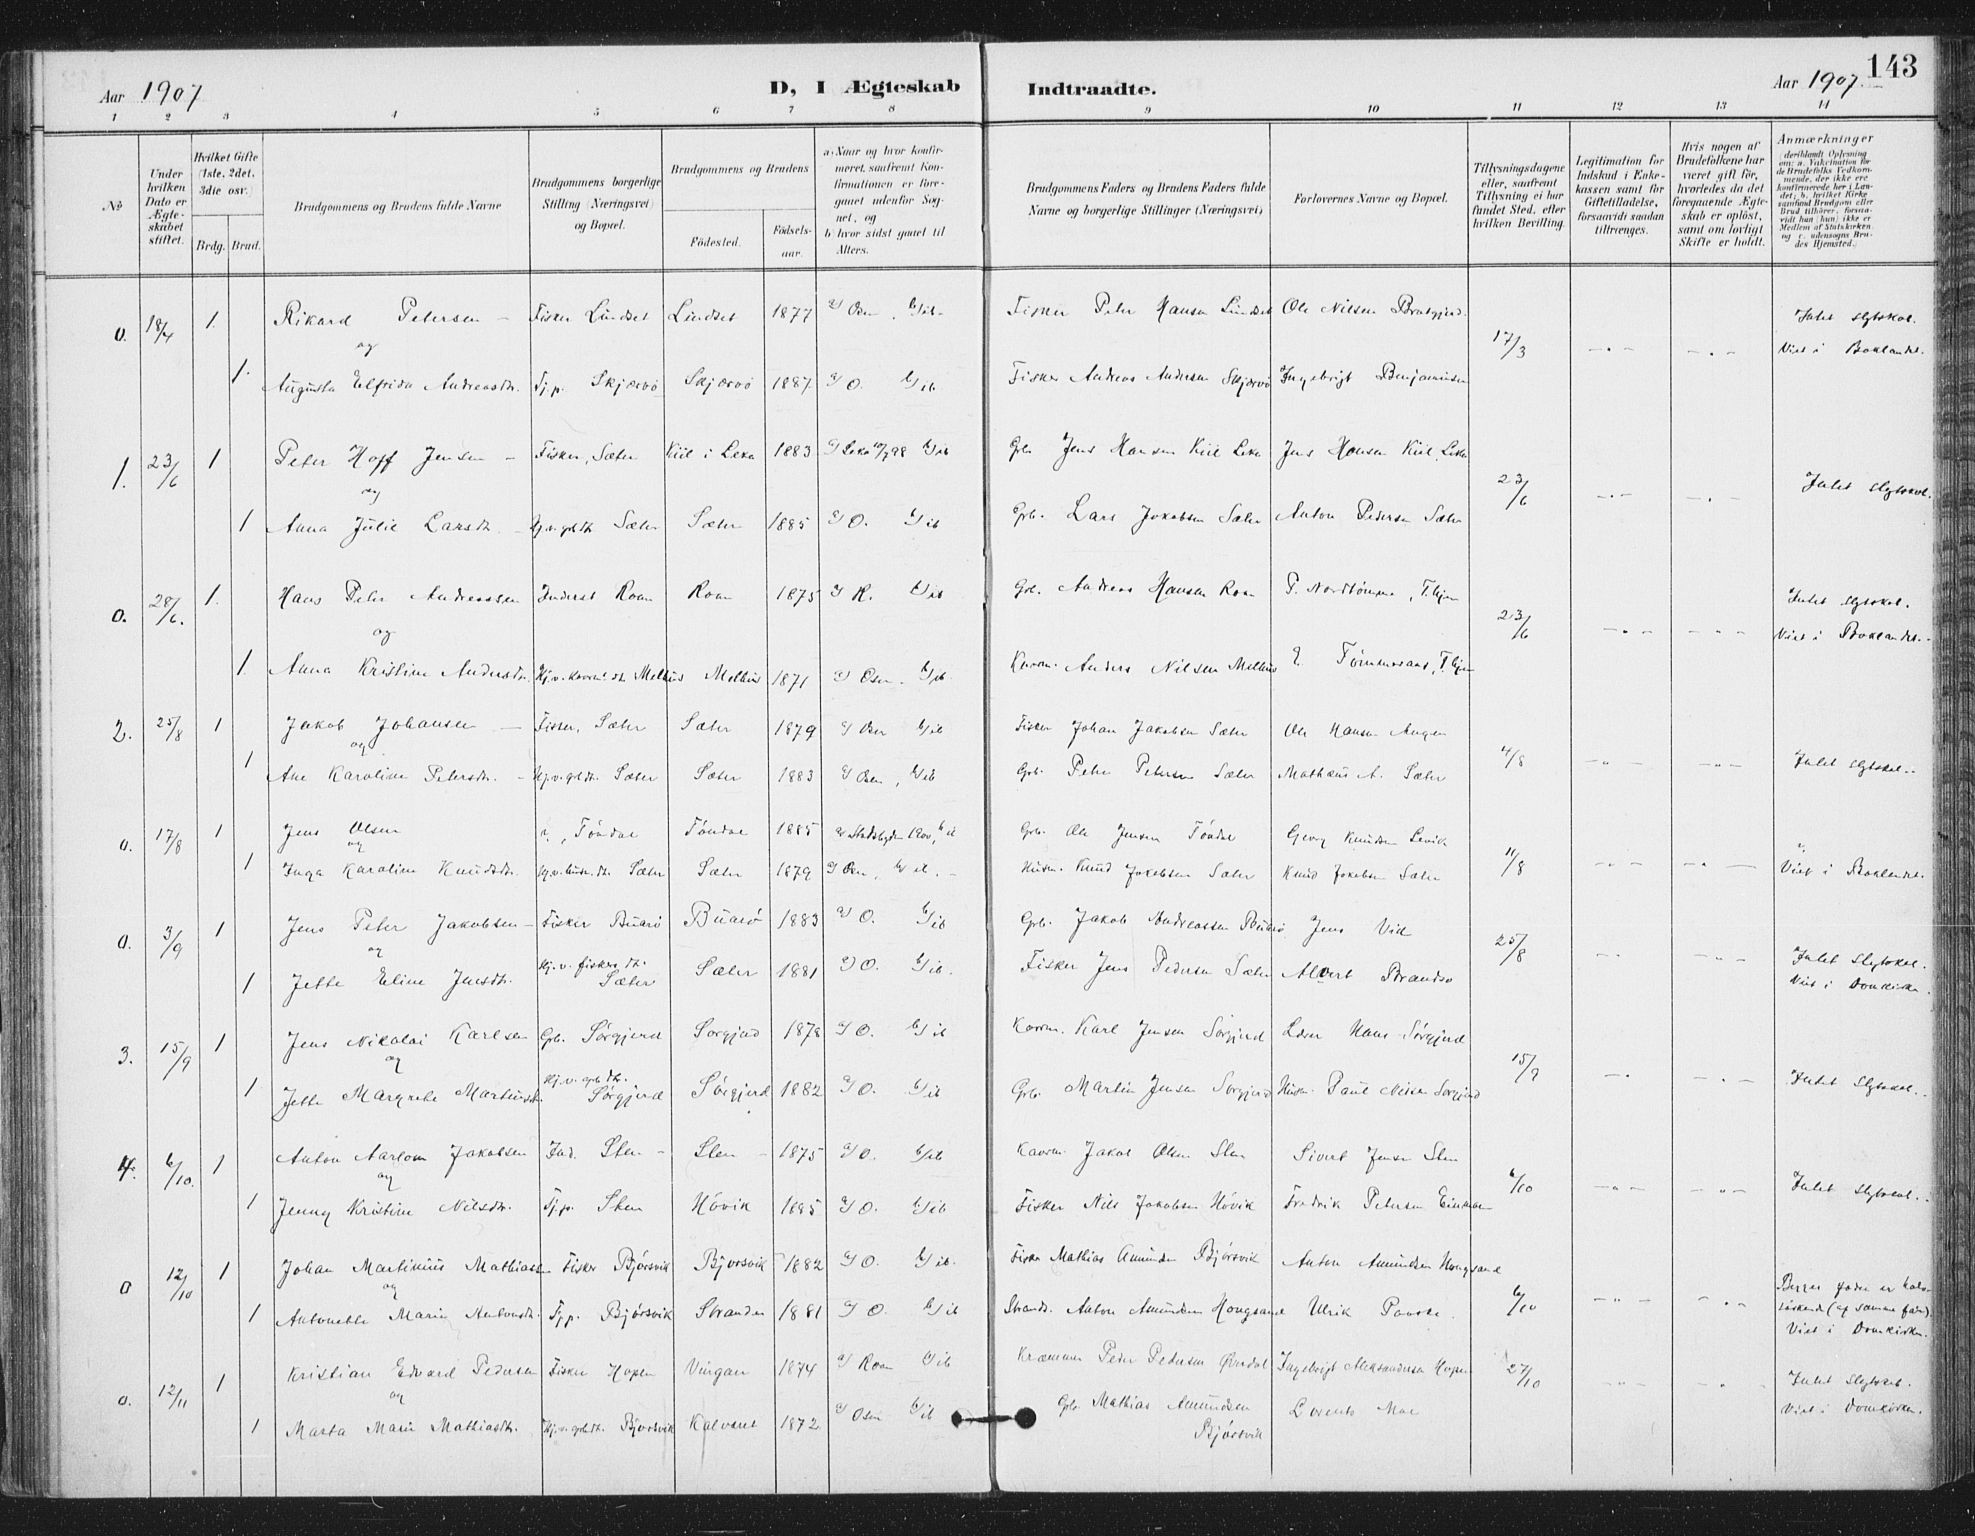 Aar 1907
D, I Ægteskab Indtraadte.
Aar 1907. 143
1 2 3 4 5 6 7 8 9 10 11 12 13 14
No
Under hvilken Dato er Ægteskabet stiftet.
Hvilket Gifte (1ste, 2det, 3die osv.)
Brdg. Brud.
Brudgommens og Brudens fulde Navne
Brudgommens borgerlige Stilling (Næringsvei) og Bopæl.
Brudgommens og Brudens
Fødested. Fødselsaar.
a) Naar og hvor konfirmeret, saafremt Konfirmationen er foregaaet udenfor Sognet, og
b) hvor sidst gaaet til Alters.
Brudgommens Faders og Brudens Faders fulde Navne og borgerlige Stillinger (Næringsvei)
Forlovernes Navne og Bopæl.
Tillysningsdagene eller, saafremt Tillysning ei har fundet Sted, efter hvilken Bevilling.
Legitimation for Indskud i Enkekassen samt for Giftetilladelse, forsaavidt saadan tiltrænges.
Hvis nogen af Brudefolkene har været gift før, hvorledes da det foregaaende Ægteskab er opløst, samt om lovligt Skifte er holdt.
Anmærkninger
0. 18/4 1. Rikard Petersen – Fisker Lindset Lindset 1877 a) Osen, b) ib. Fisker Peter Hansen Lindset Ole Nilsen 17/3 Intet slgtskab.
og Viet i Baklandet.
1. Augusta Elfrida Andreasdtr. Tj.p. Skjærvö Skjærvö 1887 a) O. b) ib Fisker Andreas Andersen Skjærvö Ingebrigt Benjaminsen
1. 23/6 1 Peter Hoff Jensen – Fisker, Sæter Kiil i Leka 1883 b) ib Gb. Jens Hansen Kiil Leka Jens Hansen Kiil, Leka 23/6 Intet slgtskab.
og
1 Anna Julie Larsdtr. – Hj.v. gbdtr. Sæter Sæter 1885 a) O. b) ib Grb. Lars Jakobsen Sæter Anton Pedersen Sæter
0. 28/6. 1. Hans Peter Andreassen Inderst Roan Roan 1875 a) R. b) ib Gb. Andreas Hansen Roan P. Nordtömme, T.hjem 23/6 Intet slgtskab.
og Viet i Baklandet.
1. Anna Kristine Andersdtr. Melhus Melhus 1871 a) Osen. b) ib. Kaarm. Anders Nilsen Melhus
2. 25/8 1 Jakob Johansen – Fisker, Sæter Sæter 1879 a) Osen b) ib Fisker Johan Jakobsen Sæter Ole Hansen 4/8 Intet slgtskab.
og
1 Ane Karoline Petersdtr. – Hj.v. gbdtr. Sæter Sæter 1883 a) Osen, b) ib Grb. Peter Petersen Sæter Mathæus A. Sæter
0. 17/8 1 Jens Olsen Töndel Töndel 1885 a) Stadsbygden 1900, b) ib Grb. Ole Jensen Töndel Georg Knudsen 11/8
og Viet i Baklandet.
1 Inga Karoline Knudsdtr. Sæter Sæter 1879 a) Osen, b) ib. Husm. Knud Jakobsen Sæter Knud Jakobsen Sæter
0. 3/9 1 Jens Peter Jakobsen – Fisker Buarö Buarö 1883 a) O. b) ib Grb. Jakob Andreassen Buarö Jens Vid 25/8 Intet slgtskab.
og Viet i Domkirken.
1 Jette Eline Jensdtr. Hj.v. fiskerdtr. Sæter Sæter 1881 a) O. b) ib. Fisker Jens Pedersen Sæter Albert Brandsö
3. 15/9 1 Jens Nikolai Karlsen Gb. Sørgjerd Sørgjerd 1878 a) O. b) ib Kaarm. Karl Jensen Sørgjerd Lærer Hans Sørgjerd 15/9 Intet slgtskab.
og
1 Jette Margrete Martinsdtr. Hj.v. gbdtr. Sørgjerd Sørgjerd 1882 a) O. b) ib Grb. Martin Jensen Sørgjerd Husm. Paul Nilsen Sørgjerd
4. 6/10. 1 Anton Jakobsen Ind. Sten – Sten – 1875 a) O. b) ib Kaarm. Jakob Olsen Sten Sivert Jensen Sten 6/10 Intet slgtskab.
og
1 Jenny Kristine Nilsdtr. Tj.p. Sten Hövik 1885 a) O. b) ib Fisker Nils Jakobsen Hövik Fredrik Petersen
0 12/10 1 Johan Martinius Mathiassen Fisker Bjørsvik Bjørsvik 1882 a) O. b) ib. Fisker Mathias Amundsen Bjørsvik Anton Amundsen Hongsand 6/10 Begges fædre er halvsöskende (af samme far).
og Viet i Domkirken.
1 Antonette Marie Antonsdtr. Tj.p. Bjørsvik Stranden 1881 a) O. b) ib Strands. Anton Amundsen Hongsand Ulrik
0. 12/11 1 Kristian Edvard Pedersen Fisker Hopen Vingan 1874 a) Roan b) ib Kræmmer Peder Pedersen Överdal Ingebrigt Aleksandersen Hopen 27/10 Intet slgtskab.
og Viet i Domkirken.
1 Marta Marie Mathiasdtr. Hj.v. gbdtr. Bjørsvik Kalvaret 1872 a) Osen b) ib Gb. Mathias Amundsen Bjørsvik Lorents Moe